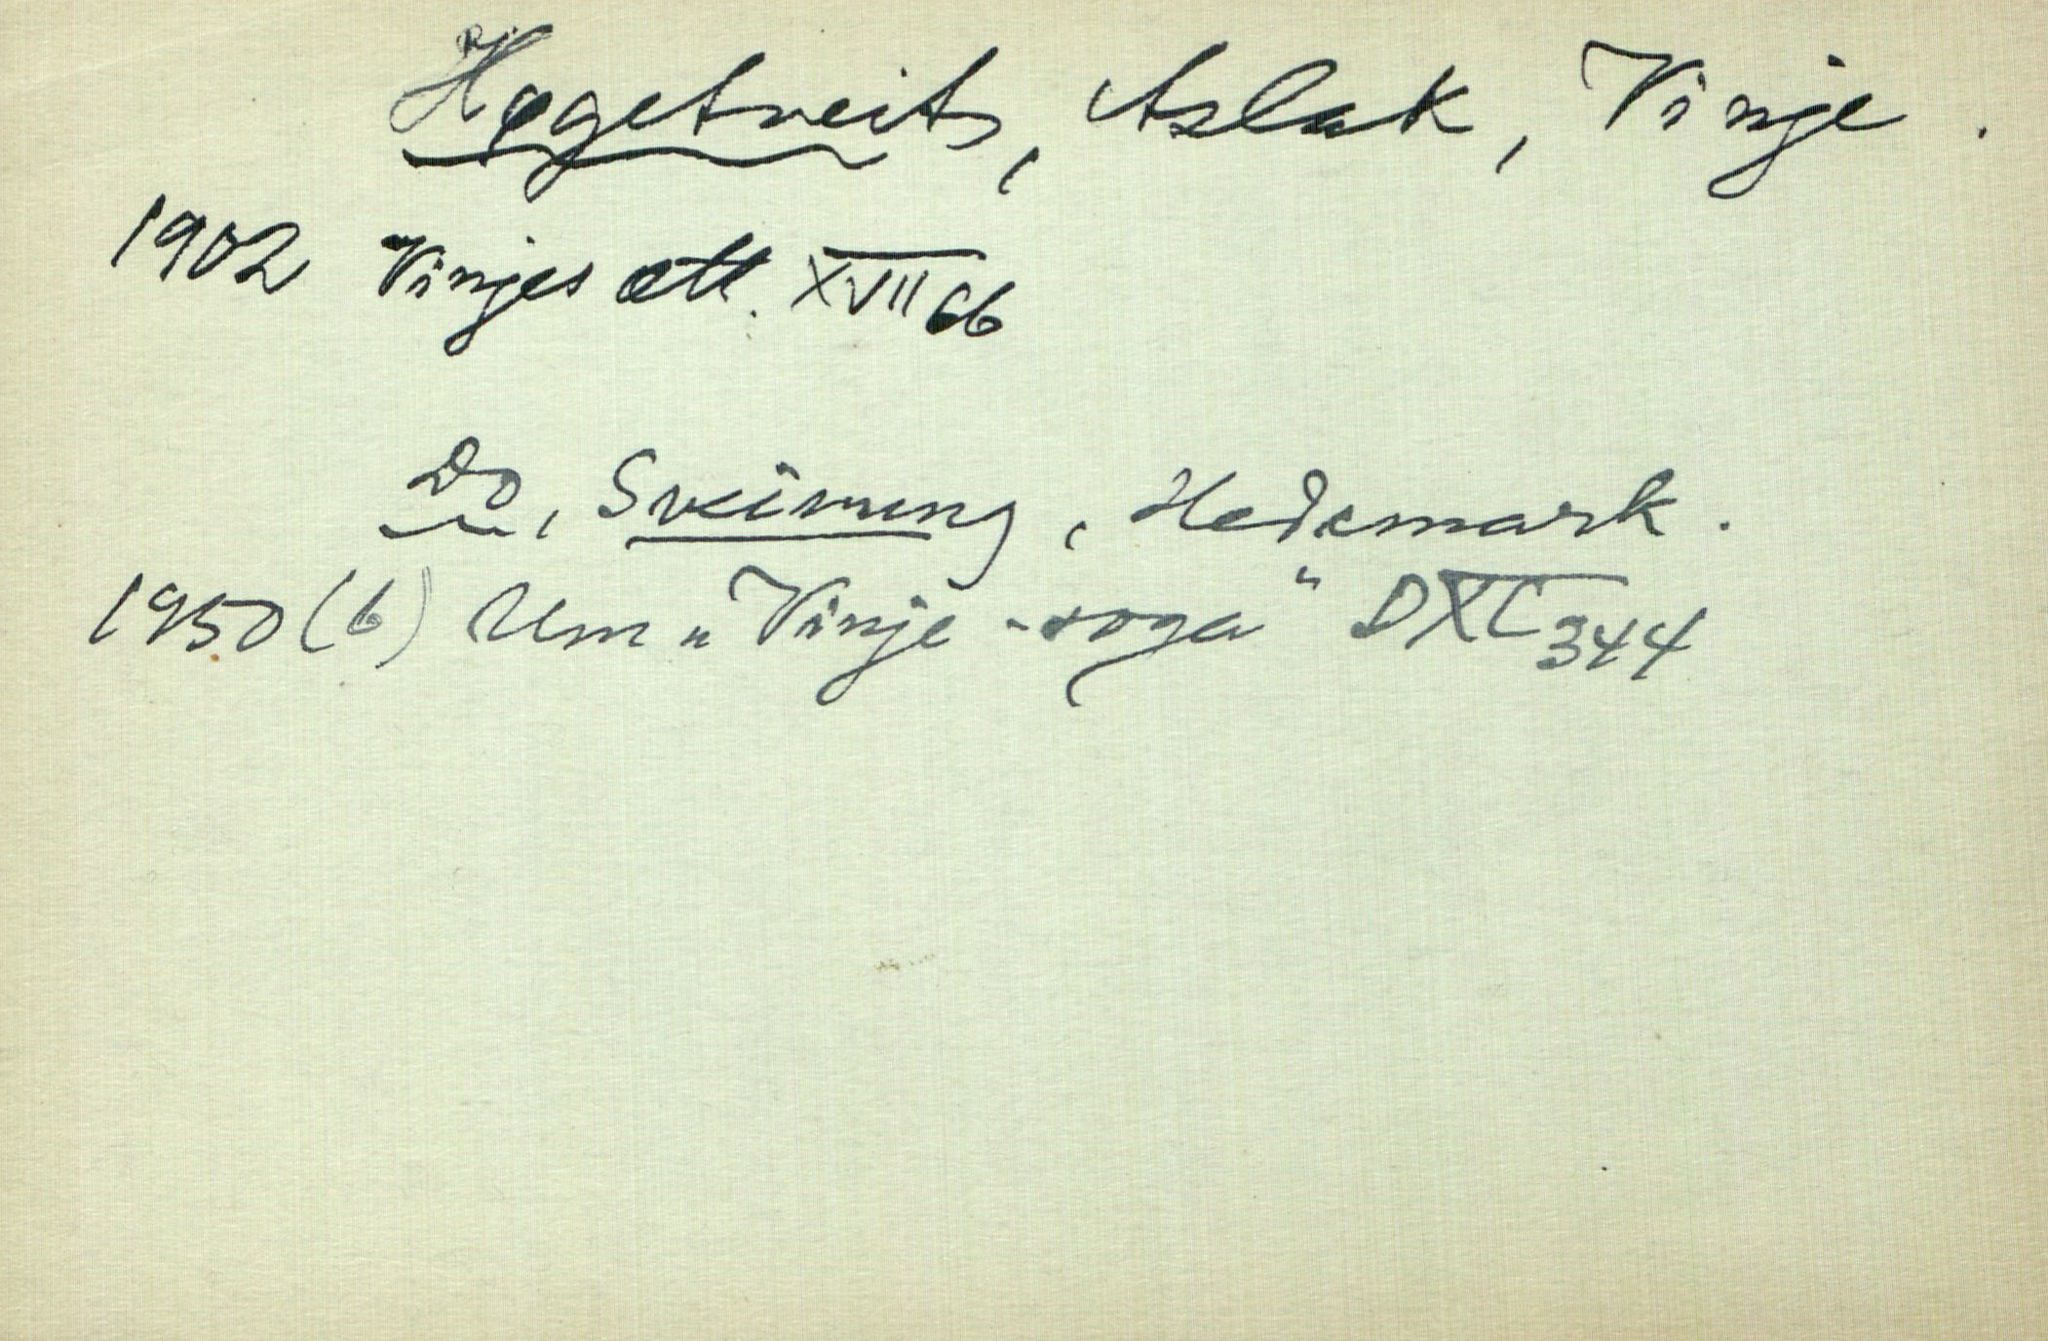 Høgetveit, Aslak, Vinje.
1902 Vinjes ætt. XVII 66
Do, Sveinung, Hedemark.
1950 (6) Um „Vinje-soga" DXC 344